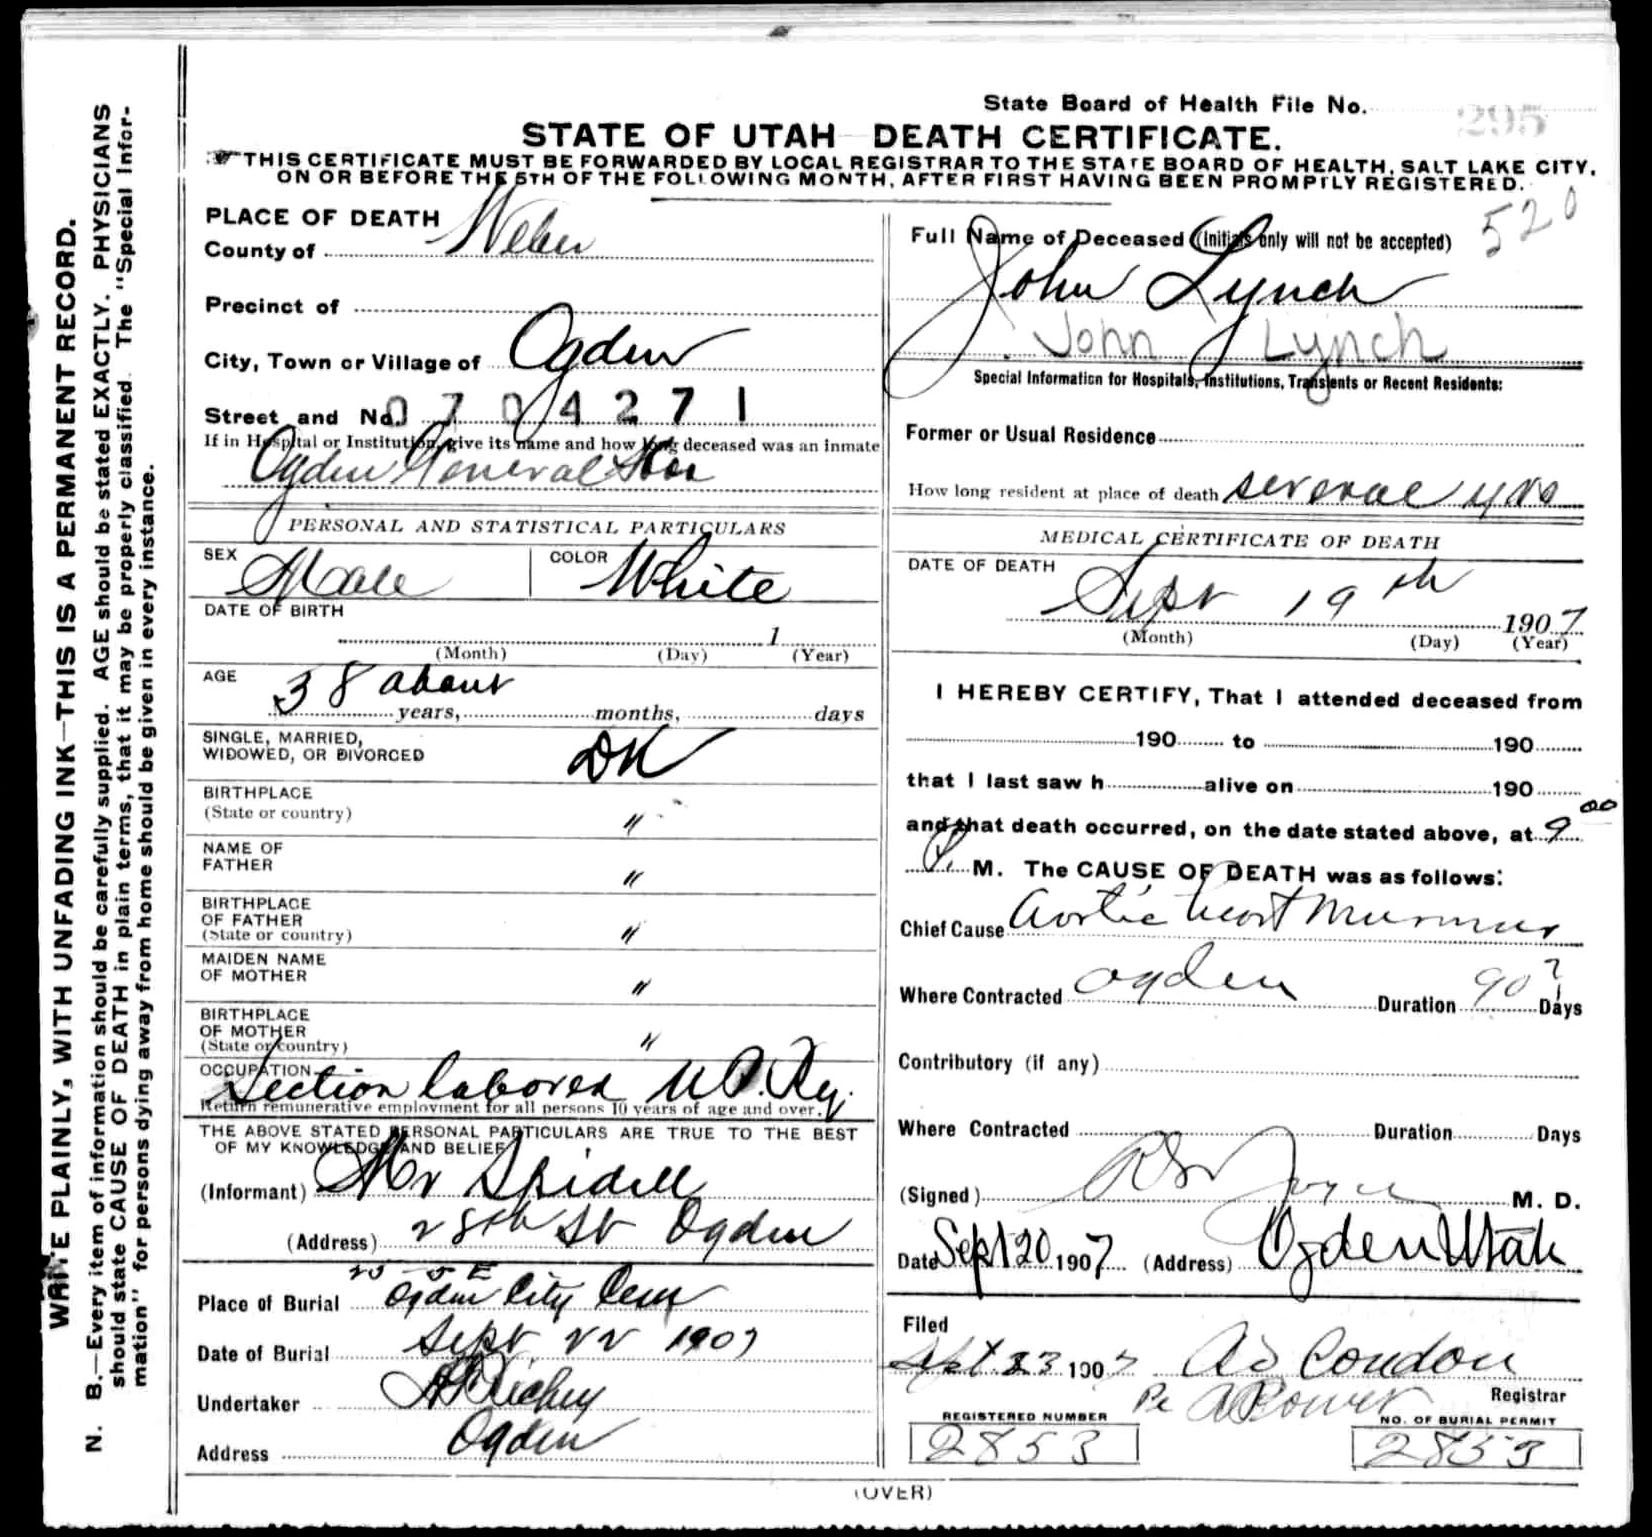 State Board of Health File No. 295
STATE OF UTAH DEATH CERTIFICATE.
THIS CERTIFICATE MUST BE FORWARDED BY LOCAL REGISTRAR TO THE STATE BOARD OF HEALTH, SALT LAKE CITY,
ON OR BEFORE THE 5TH OF THE FOLLOWING MONTH, AFTER FIRST HAVING BEEN PROMPTLY REGISTERED.
WRITE PLAINLY, WITH UNFADING INK—THIS IS A PERMANENT RECORD.
N. B.—Every item of information should be carefully supplied. AGE should be stated EXACTLY. PHYSICIANS
should state CAUSE OF DEATH in plain terms, that it may be properly classified. The "Special Infor-
mation" for persons dying away from home should be given in every instance.
PLACE OF DEATH
County of Weber
Precinct of
City, Town or Village of Ogden
Street and No. 0704271
If in Hospital or Institution, give its name and how long deceased was an inmate
Ogden General Hos
PERSONAL AND STATISTICAL PARTICULARS
SEX Male COLOR White
DATE OF BIRTH
1
(Month) (Day) (Year)
AGE 38 about
years, months, days
SINGLE, MARRIED,
WIDOWED, OR DIVORCED DK
BIRTHPLACE
(State or country) "
NAME OF
FATHER "
BIRTHPLACE
OF FATHER
(State or country) "
MAIDEN NAME
OF MOTHER "
BIRTHPLACE
OF MOTHER
(State or country) "
OCCUPATION
Section laborer U.P. Ry.
Return remunerative employment for all persons 10 years of age and over.
THE ABOVE STATED PERSONAL PARTICULARS ARE TRUE TO THE BEST
OF MY KNOWLEDGE AND BELIEF
(Informant) Mr Spidell
(Address) 28th St Ogden
Place of Burial Ogden City Cem
Date of Burial Sept 22 1907
Undertaker Richey
Address Ogden
520
Full Name of Deceased (Initials only will not be accepted)
John Lynch
John Lynch
Special Information for Hospitals, Institutions, Transients or Recent Residents:
Former or Usual Residence
How long resident at place of death several yrs
MEDICAL CERTIFICATE OF DEATH
DATE OF DEATH
Sept 19th 1907
(Month) (Day) (Year)
I HEREBY CERTIFY, That I attended deceased from
190 to 190
that I last saw h alive on 190
and that death occurred, on the date stated above, at 9 00
P. M. The CAUSE OF DEATH was as follows:
Chief Cause Aortic heart Murmur
Where Contracted Ogden Duration 90? Days
Contributory (if any)
Where Contracted Duration Days
(Signed) Joyce M. D.
Date Sept 20 1907 (Address) Ogden Utah
Filed
Sept 23 1907 A S Condon
Registrar
Pe A Power
REGISTERED NUMBER NO. OF BURIAL PERMIT
2853 2853
(OVER)